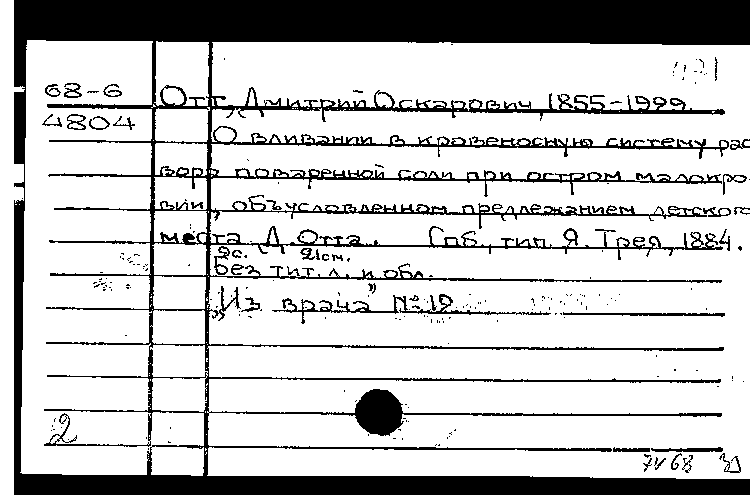 68-6
4804
Отт, Дмитрий Оскарович, 1855-1929.
О вливании в кровеносную систему рас
вора поваренной соли при остром малокро
вии, обусловленном предлежанием детского
места Д. Отта. Спб., тип. Я. Трея, 1884.
2с. 21см.
без тит. л. и обл.
„Из врача" № 19
2